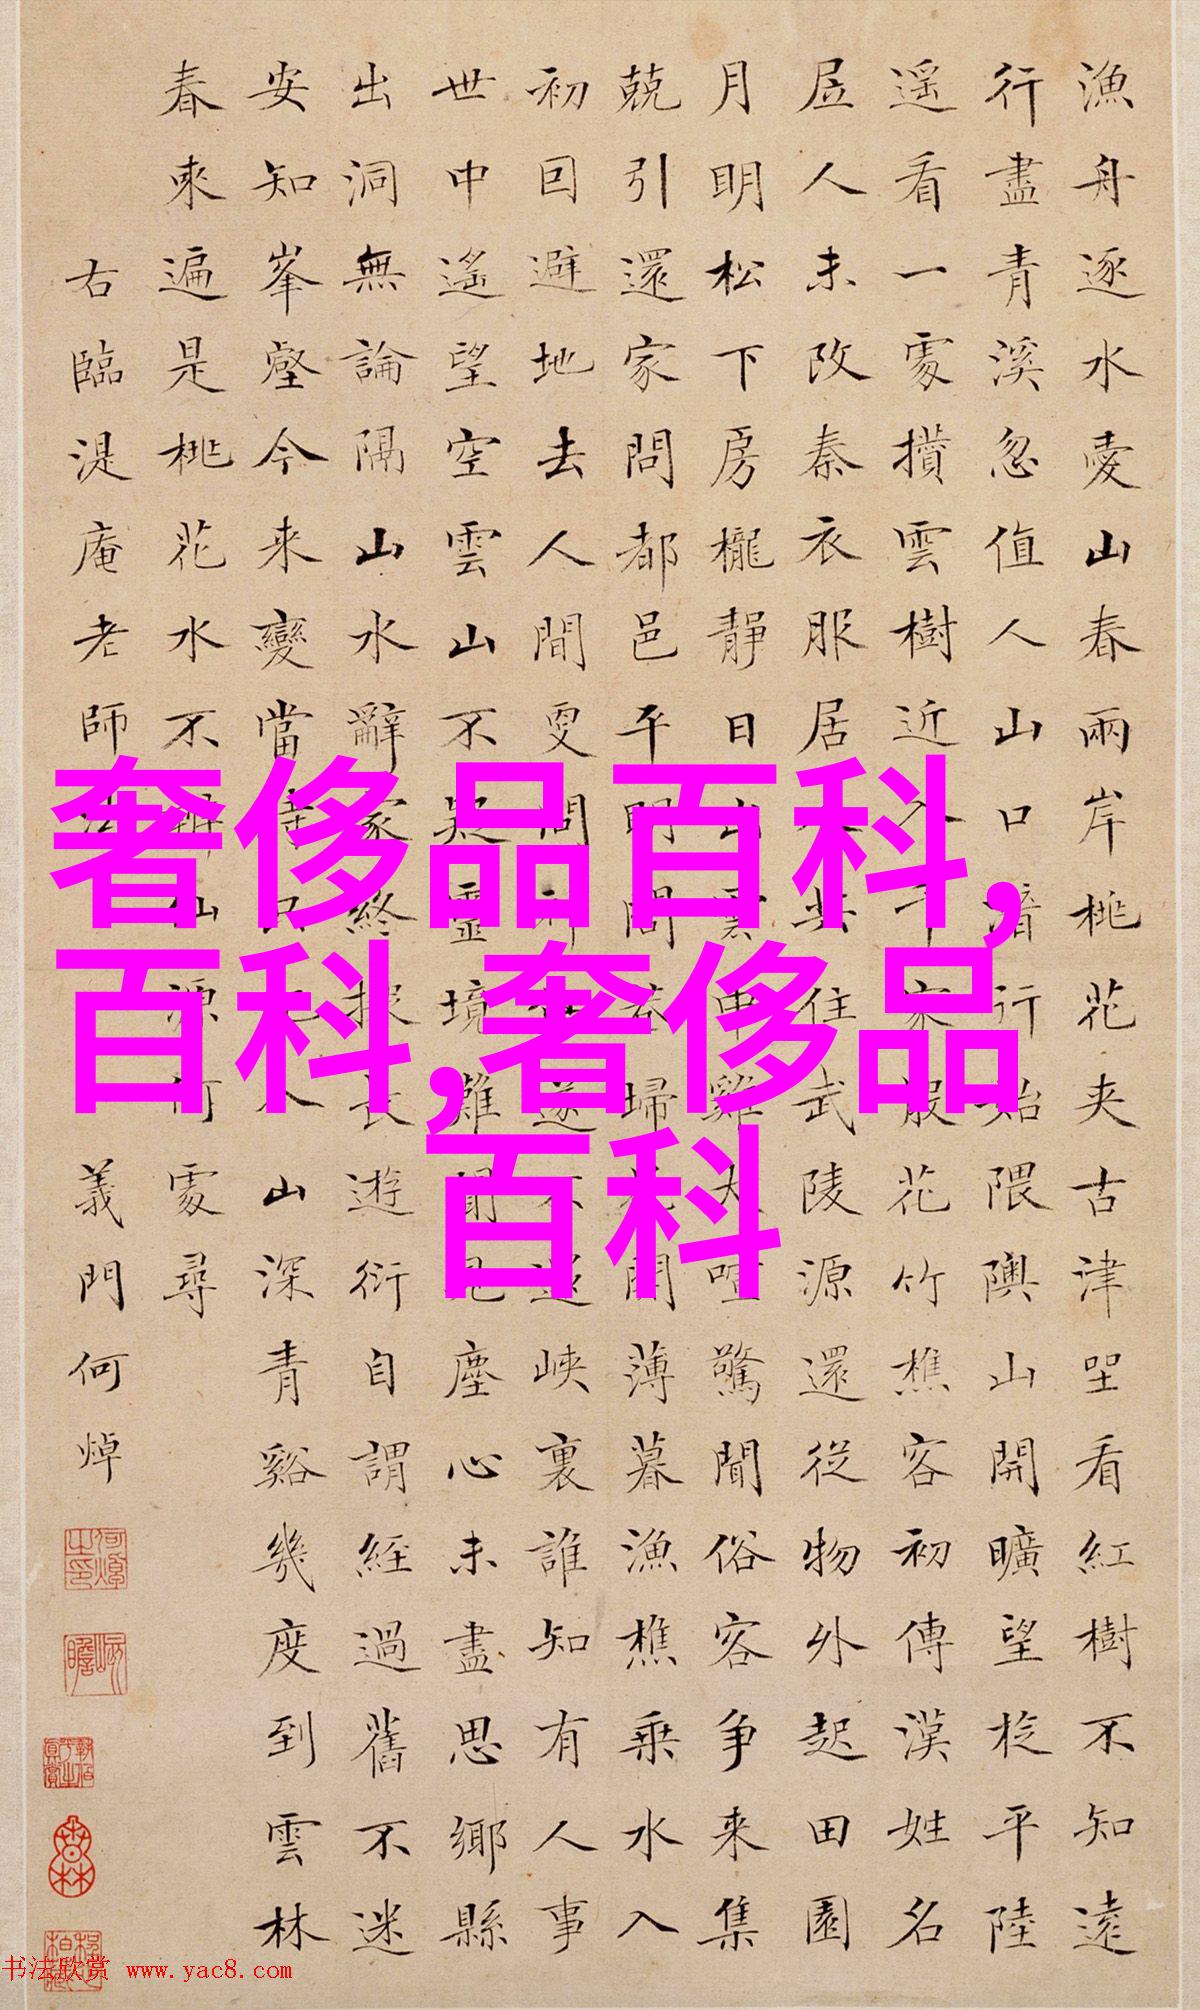 漁舟逐水愛山春兩岸桃花夾古津坐看紅樹不知遠
行盡青溪忽值人山口行始隈隩山開曠望旋平陸
遥看一處攢雲樹近入千家散花竹樵客初傳漢姓名
居人未改秦衣服居人共住武陵源還從物外起田園
月明松下房櫳靜日出雲中雞犬喧驚聞俗客争来集
競引還家問都邑平明閭巷掃花開薄暮漁樵乘水入
初因避地去人間更問神仙遂不還峽裏誰知有人事
世中遙望空雲山不疑靈境難聞見塵心未盡思鄉縣
出洞無論隔山水辭家終擬長遊衍自謂經過舊不迷
安知峯壑今来變當時只記入山深青谿幾度到雲林
春來遍是桃花水不辨仙源何處尋
右臨湜庵老師法
義門何焯
奢侈品百科,
百科,奢侈品
百科
书法欣赏 www.yac8.com